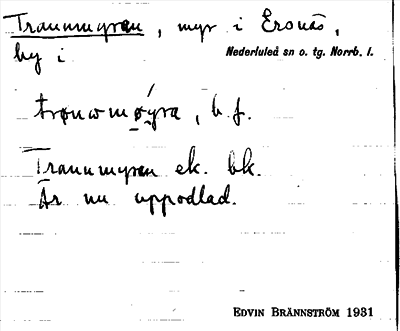 Tranumyren, myr i Ersnäs,
by i Nederluleå sn o. tg. Norrb. l.
b. f.
Tranumyren ek. bk.
Är nu uppodlad.
EDVIN BRÄNNSTRÖM 1931